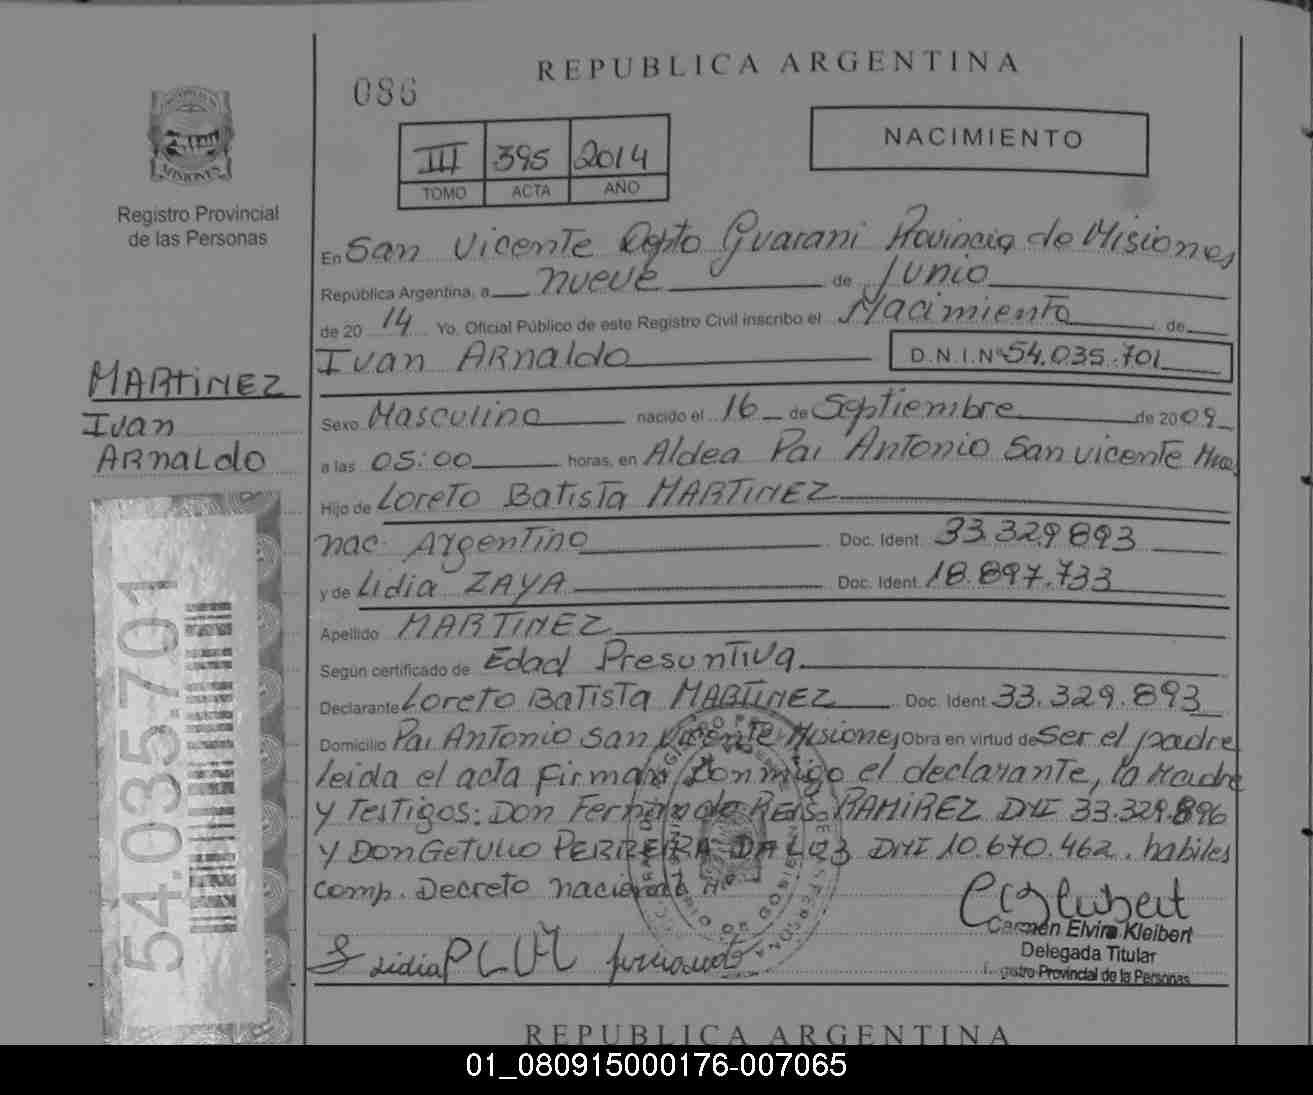 REPUBLICA ARGENTINA
086
NACIMIENTO
III 395 2014
TOMO ACTA AÑO
MISIONES
Registro Provincial
de las Personas
En San Vicente Depto Guarani Provincia de Misiones
República Argentina, a nueve de Junio
de 20 14 Yo. Oficial Público de este Registro Civil inscribo el Nacimiento de
Ivan Arnaldo D.N.I.Nº 54.035.701
MARTINEZ
Ivan
ARnaldo
Sexo Masculino nacido el 16 de Septiembre de 2009
a las 05:00 horas, en Aldea Pai Antonio San Vicente
Hijo de Loreto Batista MARTINEZ
nac. Argentino Doc. Ident. 33.329893
y de Lidia ZAYA Doc. Ident. 18.897.733
Apellido MARTINEZ
Según certificado de Edad Presuntiva
Declarante Loreto Batista MARTINEZ Doc. Ident. 33.329.893
Domicilio Pai Antonio San Vicente Misiones Obra en virtud de Ser el padre
leida el acta firman Conmigo el declarante, la Madre
y Testigos: Don Fernando REIS RAMIREZ DNI 33.329.896
y Don Getulio PERREIRA DA LUZ DNI 10.670.462. habiles
comp. Decreto nacional
54.035.701
Lidia
Carmen Elvira Kleibert
Delegada Titular
Registro Provincial de la Personas
REPUBLICA ARGENTINA
01_080915000176-007065